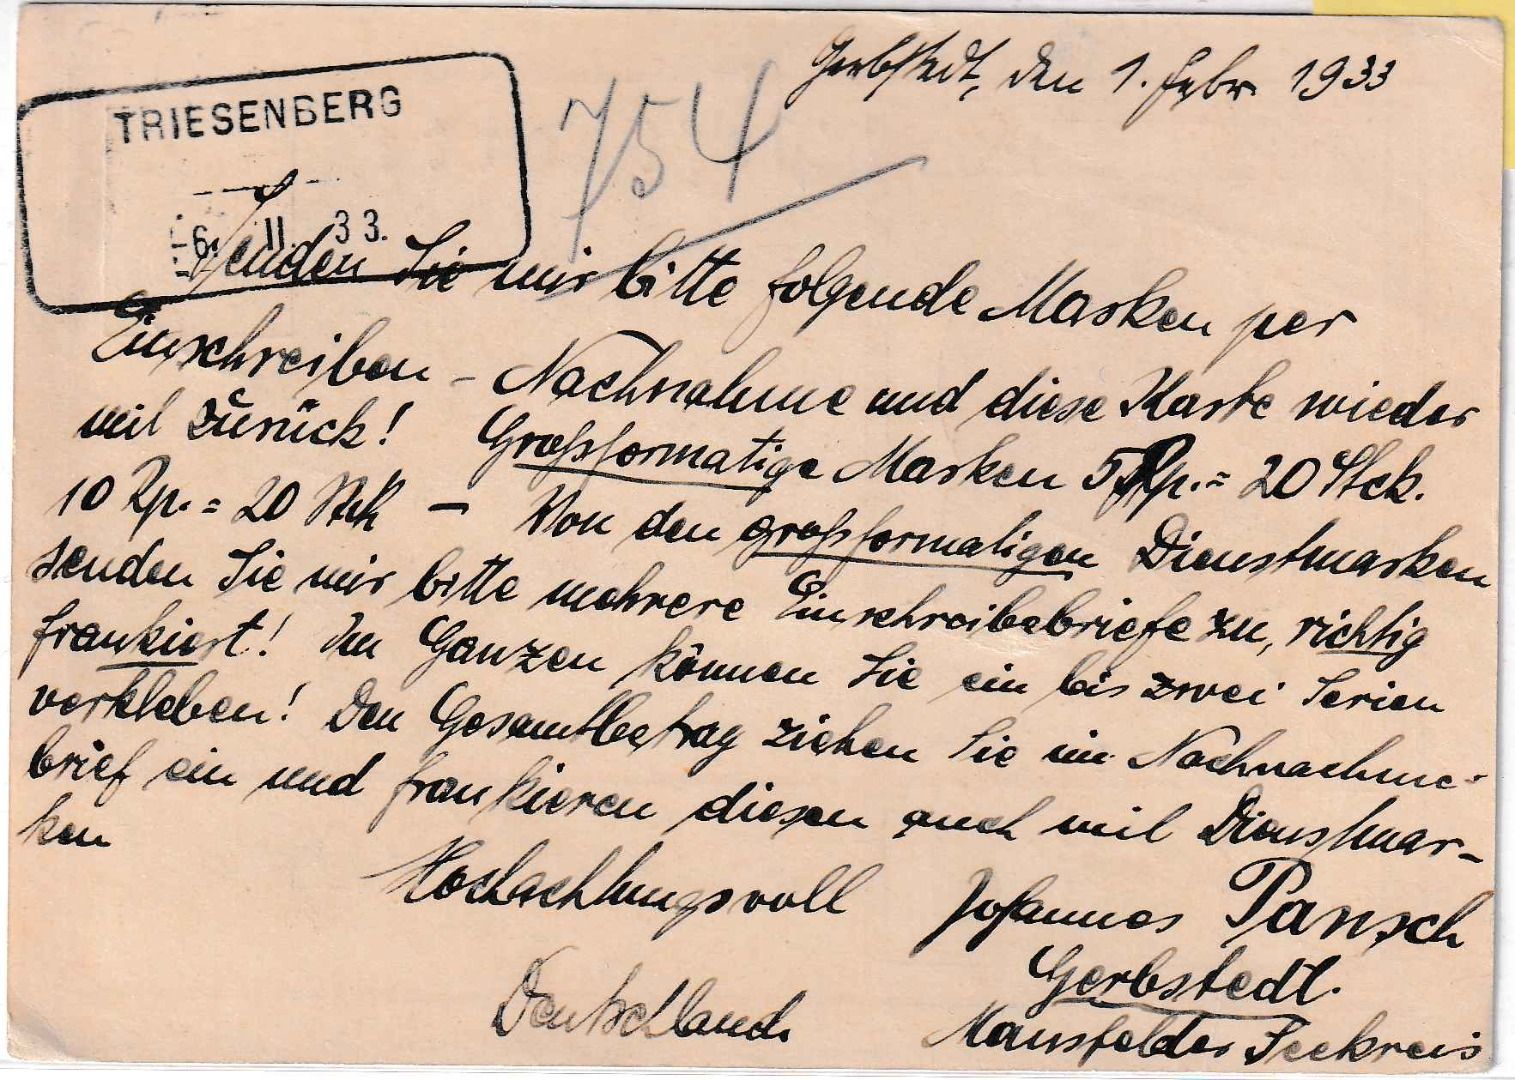 Gerbstedt, den 1. Febr. 1933
TRIESENBERG
754
-6. II. 33.
Senden Sie mir bitte folgende Marken per
Einschreiben - Nachnahme und diese Karte wieder
mit zurück! Großformatige Marken 5 Rp. = 20 Stck.
10 Rp. = 20 Stck - Von den großformatigen Dienstmarken
senden Sie mir bitte mehrere Einschreibebriefe zu, richtig
frankiert! Im Ganzen können Sie ein bis zwei Serien
verkleben! Den Gesamtbetrag ziehen Sie im Nachnahme-
brief ein und frankieren diesen auch mit Dienstmar-
ken
Hochachtungsvoll Johannes Pansch
Gerbstedt.
Deutschland. Mansfelder Seekreis